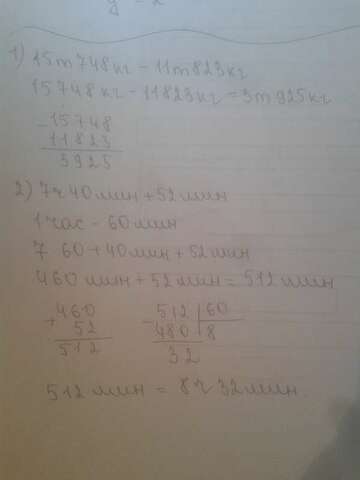 y = 2
1) 15т 748кг - 11т 823кг
15748кг - 11823кг = 3т 925кг
- 15748
11823
3925
2) 7ч 40мин + 52мин
1 час - 60мин
7 60 + 40мин + 52мин
460мин + 52мин = 512мин
+ 460
52
512
- 512 | 60
480 | 8
32
512мин = 8ч 32мин